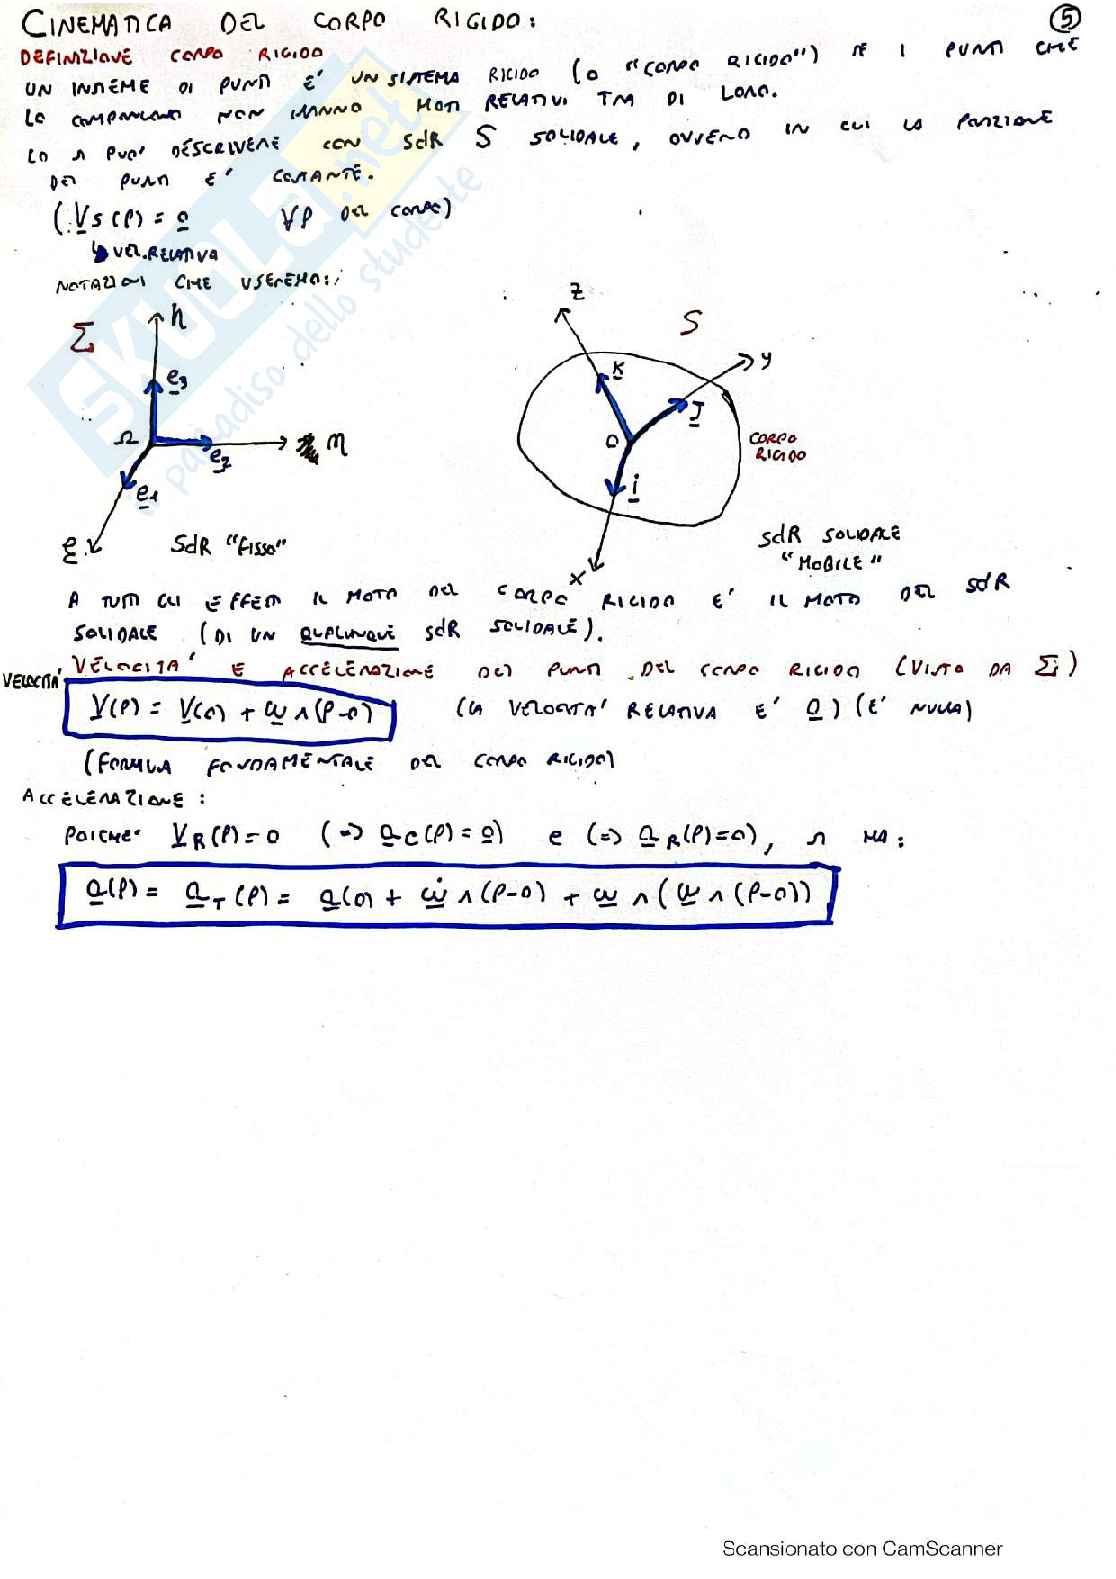 CINEMATICA DEL CORPO RIGIDO:
5
DEFINIZIONE CORPO RIGIDO
UN INSIEME DI PUNTI E' UN SISTEMA RIGIDO (O "CORPO RIGIDO") SE I PUNTI CHE
LO COMPONGONO NON HANNO MOTI RELATIVI TRA DI LORO.
LO SI PUO' DESCRIVERE CON SdR S SOLIDALE, OVVERO IN CUI LA POSIZIONE
DEI PUNTI E' COSTANTE.
(V̲s(P) = 0̲ ∀P DEL CORPO)
↳ VEL. RELATIVA
NOTAZIONI CHE USEREMO:
Σ
h
e̲3
Ω
e̲2
η
e̲1
ξ
SdR "FISSO"
z
S
K̲
y
J̲
O
CORPO
RIGIDO
i̲
x
SdR SOLIDALE
"MOBILE"
A TUTTI GLI EFFETTI IL MOTO DEL CORPO RIGIDO E' IL MOTO DEL SdR
SOLIDALE (DI UN QUALUNQUE SdR SOLIDALE).
VELOCITA' E ACCELERAZIONE DEI PUNTI DEL CORPO RIGIDO (VISTO DA Σ)
VELOCITA'
V̲(P) = V̲(O) + ω̲ ∧ (P-O) (LA VELOCITA' RELATIVA E' 0̲) (E' NULLA)
(FORMULA FONDAMENTALE DEL CORPO RIGIDO)
ACCELERAZIONE:
POICHE' V̲R(P) = 0 (=> a̲c(P) = 0̲) e (=> a̲R(P) = 0), SI HA:
a̲(P) = a̲T(P) = a̲(O) + ω̲̇ ∧ (P-O) + ω̲ ∧ (ω̲ ∧ (P-O))
SKUOLA.net
paradiso dello studente
Scansionato con CamScanner